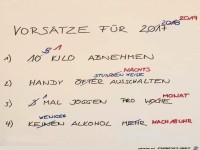 VORSÄTZE FÜR 2017 2018 2019
1) 10 5 1 KILO ABNEHMEN
NACHTS
STUNDEN WEISE
2) HANDY ÖFTER AUSSCHALTEN
MONAT
3) 3 MAL JOGGEN PRO WOCHE
WENIGER
4) KEINEN ALKOHOL MEHR NACH 18 UHR